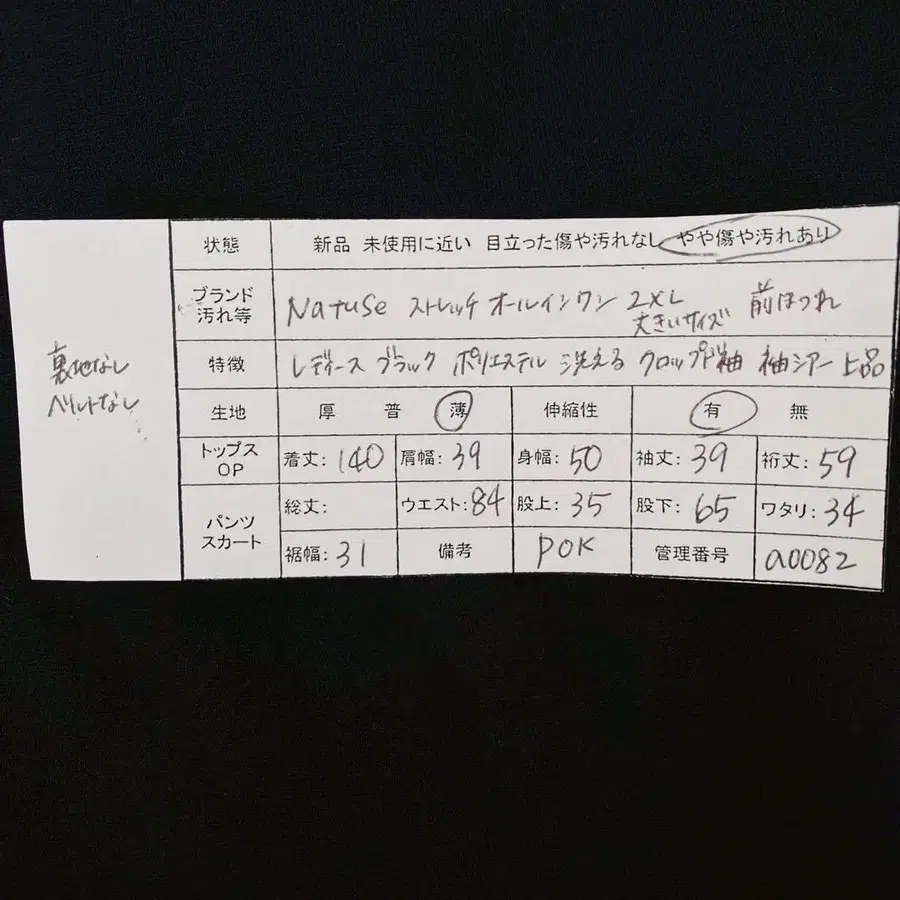 裏地なし
ベルトなし
状態 新品 未使用に近い 目立った傷や汚れなし やや傷や汚れあり
ブランド
汚れ等
Natuse ストレッチ オールインワン 2XL 前ほつれ
大きいサイズ
特徴 レディース ブラック ポリエステル 洗える クロップド袖 袖シアー 上品
生地 厚 普 薄 伸縮性 有 無
トップス
OP
着丈: 140 肩幅: 39 身幅: 50 袖丈: 39 裄丈: 59
パンツ
スカート
総丈: ウエスト: 84 股上: 35 股下: 65 ワタリ: 34
裾幅: 31 備考 POK 管理番号 a0082